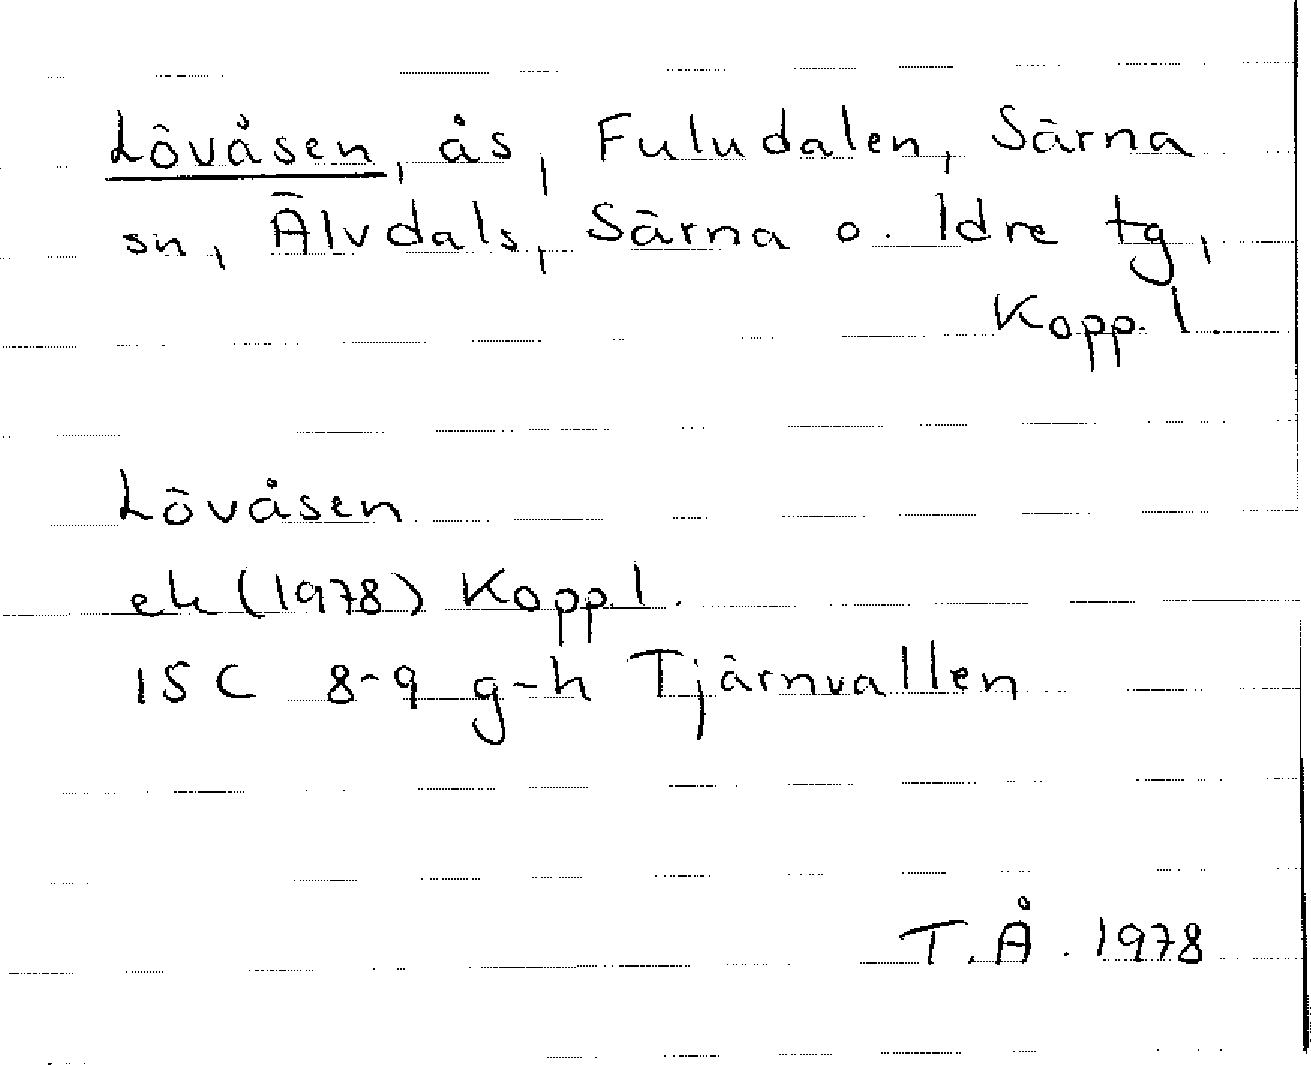 Lövåsen, ås, Fuludalen, Särna
sn, Älvdals, Särna o. Idre tg,
Kopp. l.
Lövåsen
ek (1978) Kopp. l.
15C 8-9 g-h Tjärnvallen
T.Å. 1978